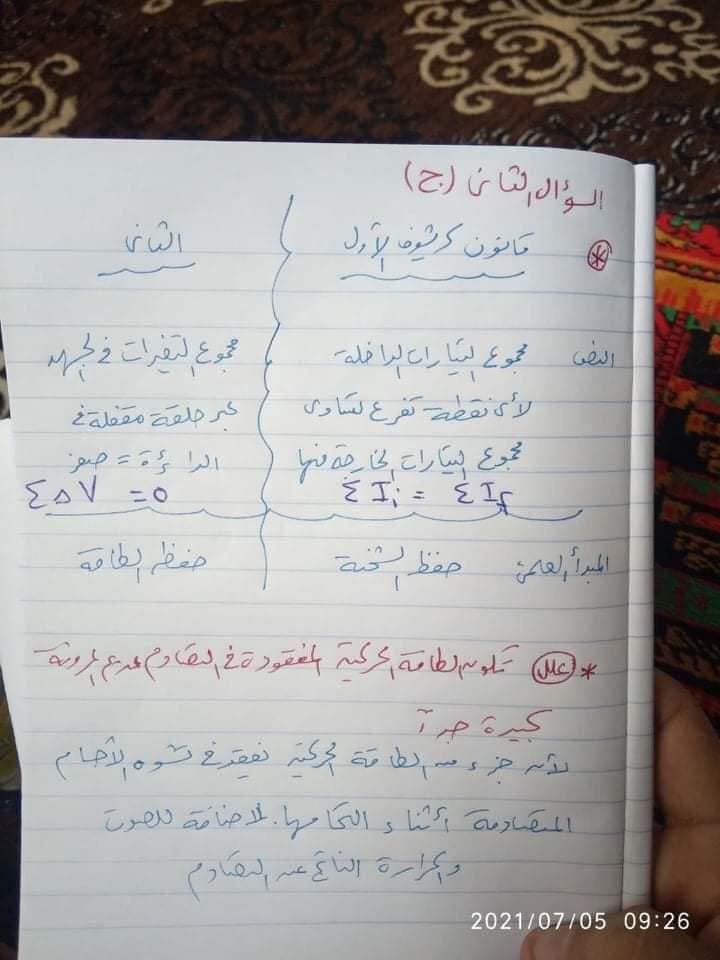 السؤال الثانى (ج)
* قانون كرشوف الأول الثانى
النص مجموع التيارات الداخلة مجموع التغيرات في الجهد
لأى نقطة تفرع تساوى عبر حلقة مقفلة في
مجموع التيارات الخارجة منها الدائرة = صفر
ΣIi = ΣIf ΣΔV = 0
المبدأ العلمى حفظ الشحنة حفظ الطاقة
* علل تكون الطاقة الحركية المفقودة في التصادم عديم المرونة
كبيرة جدآ
لأن جزء من الطاقة الحركية يفقد في تشوه الأجسام
المتصادمة أثناء التحامها. لاضافة للصوت
والحرارة الناتج عن التصادم
2021/07/05 09:26